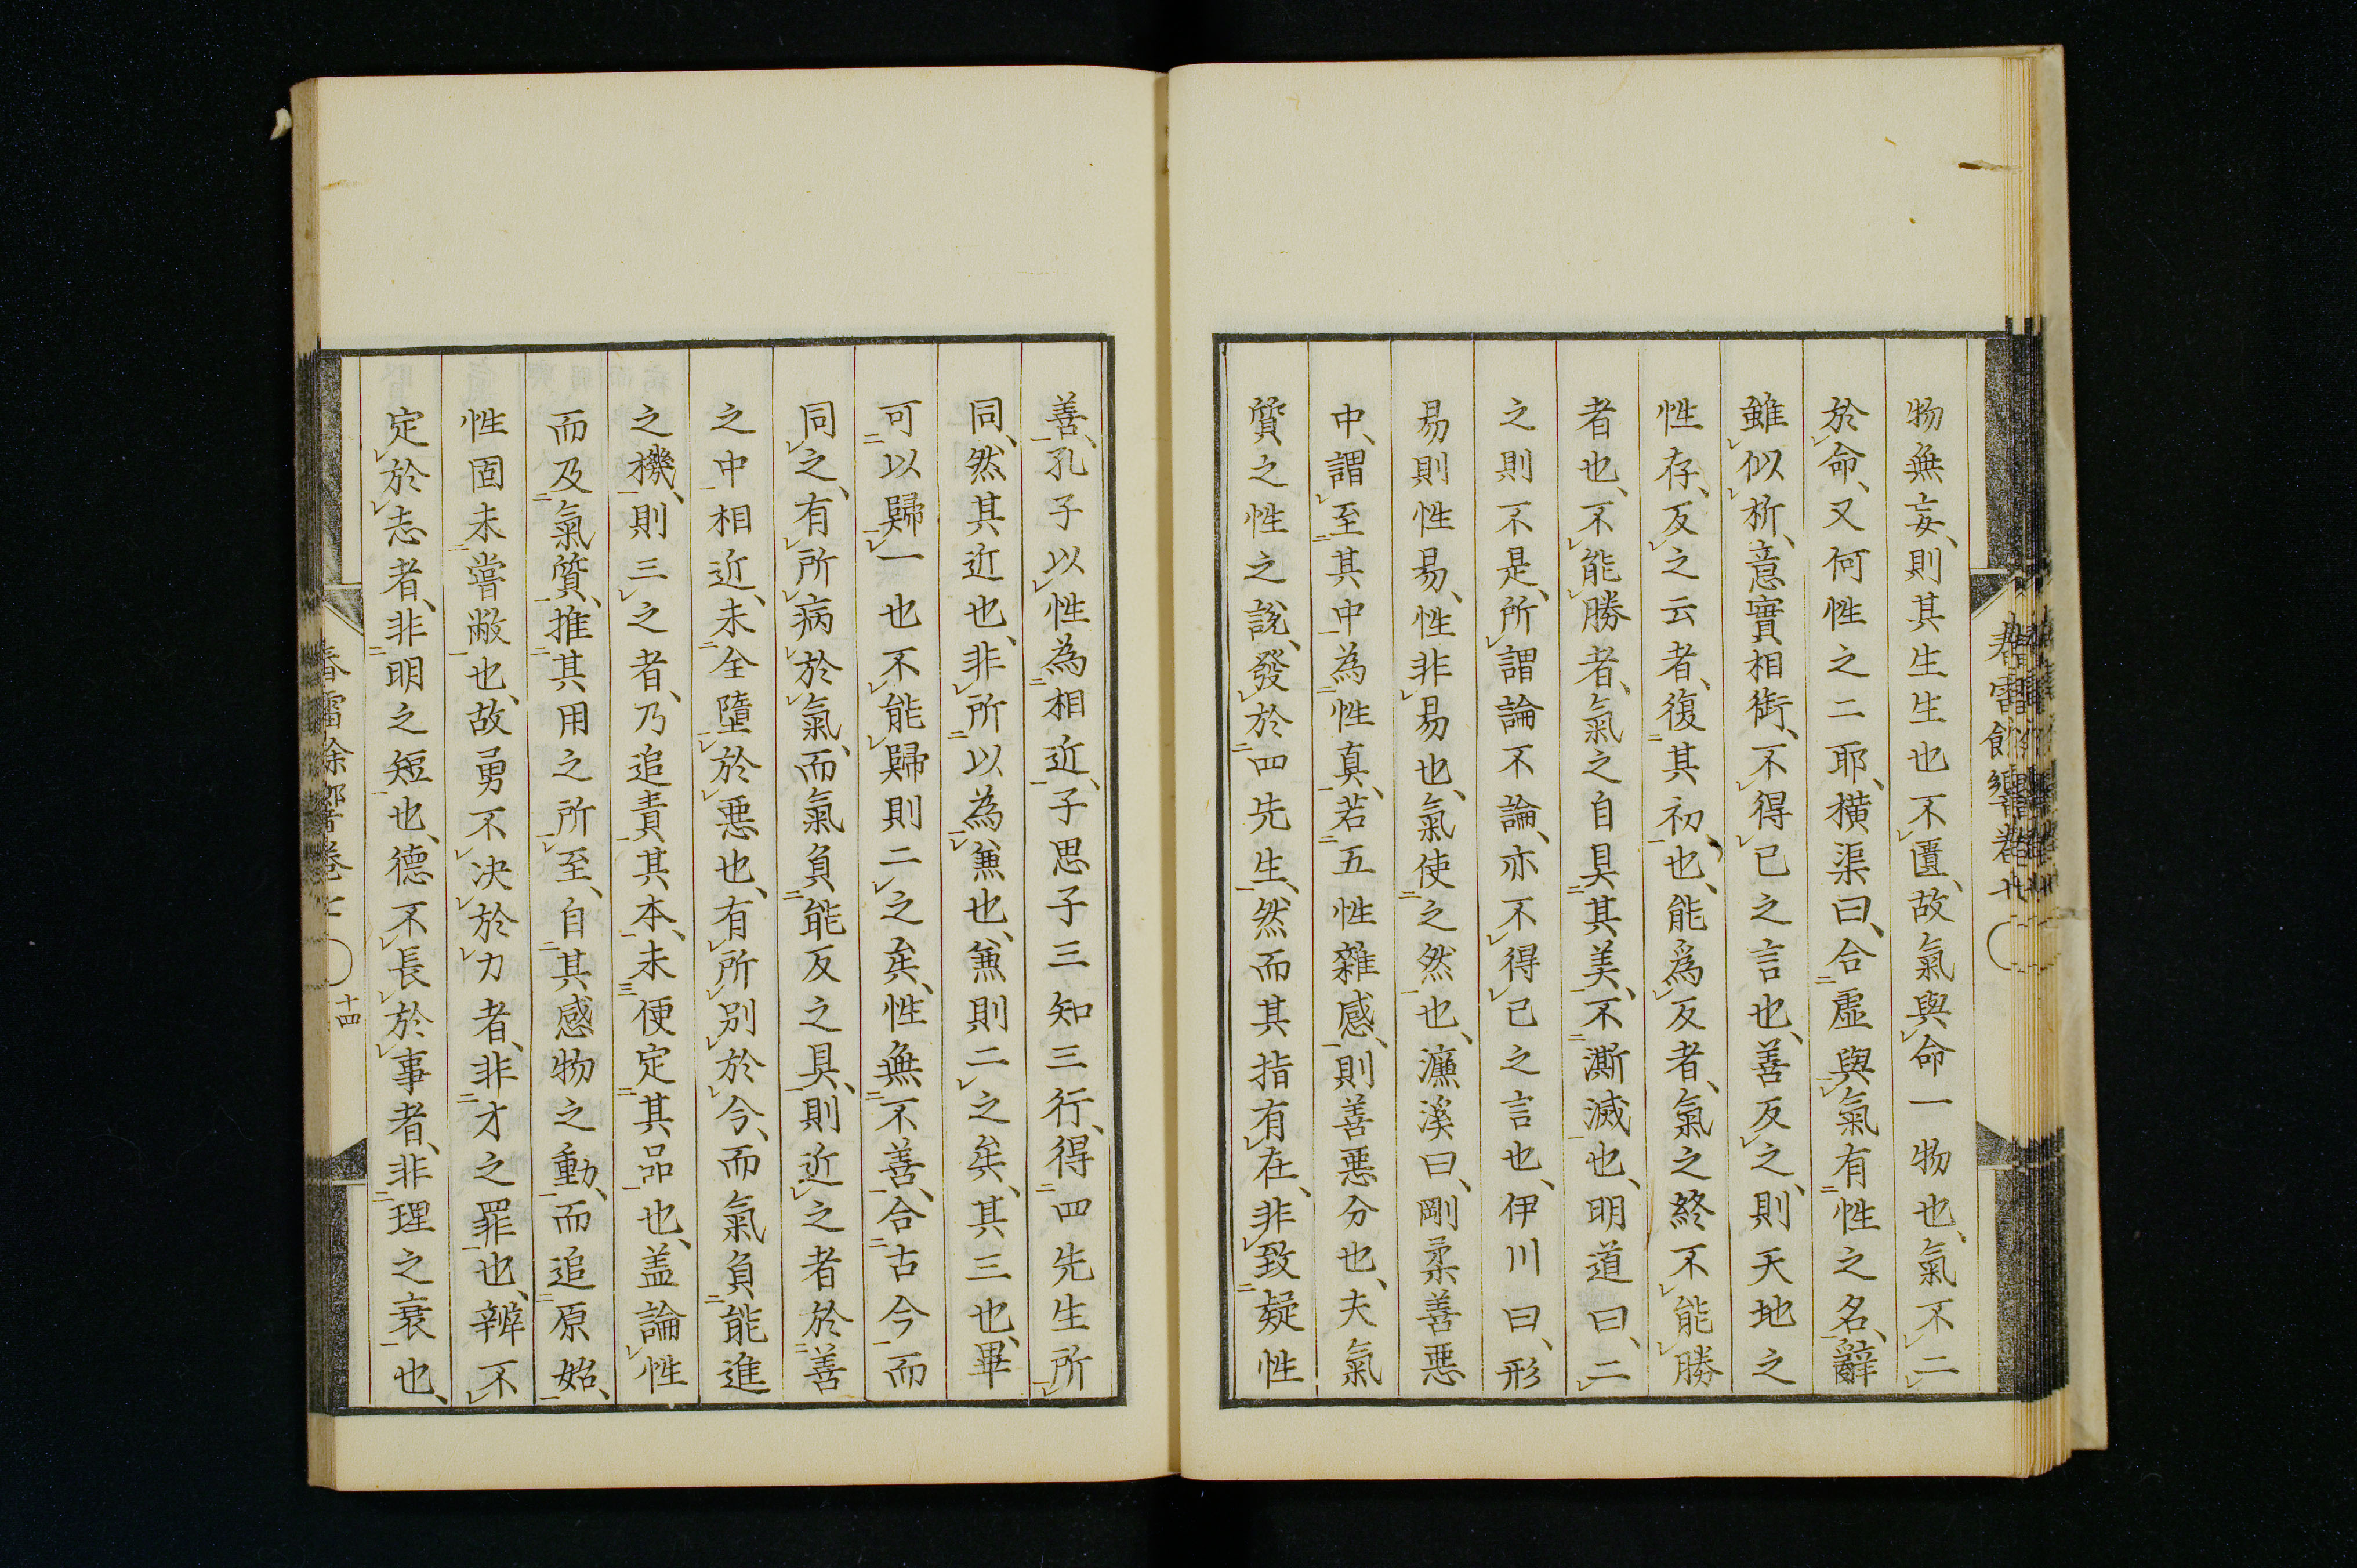 物無妄、則其生生也不匱、故氣與命一物也、氣不二
於命、又何性之二耶、橫渠曰、合虛與氣有性之名、辭
雖似析、意實相銜、不得已之言也、善反之、則天地之
性存、反之云者、復其初也、能爲反者、氣之終不能勝
者也、不能勝者、氣之自具其美、不澌滅也、明道曰、二
之則不是、所謂論不論、亦不得已之言也、伊川曰、形
易則性易、性非易也、氣使之然也、濂溪曰、剛柔善惡
中、謂至其中為性真、若五性雜感、則善惡分也、夫氣
質之性之說、發於四先生、然而其指有在、非致疑性
善、孔子以性為相近、子思子三知三行、得四先生所
同、然其近也、非所以為兼也、兼則二之矣、其三也、畢
可以歸一也不能歸則二之矣、性無不善、合古今而
同之、有所病於氣、而氣負能反之具、則近之者於善
之中相近、未全墮於惡也、有所別於今、而氣負能進
之機、則三之者、乃追責其本、未便定其品也、盖論性
而及氣質、推其用之所至、自其感物之動、而追原始、
性固未嘗敝也、故勇不决於力者、非才之罪也、辨不
定於志者、非明之短也、德不長於事者、非理之衰也、
十四